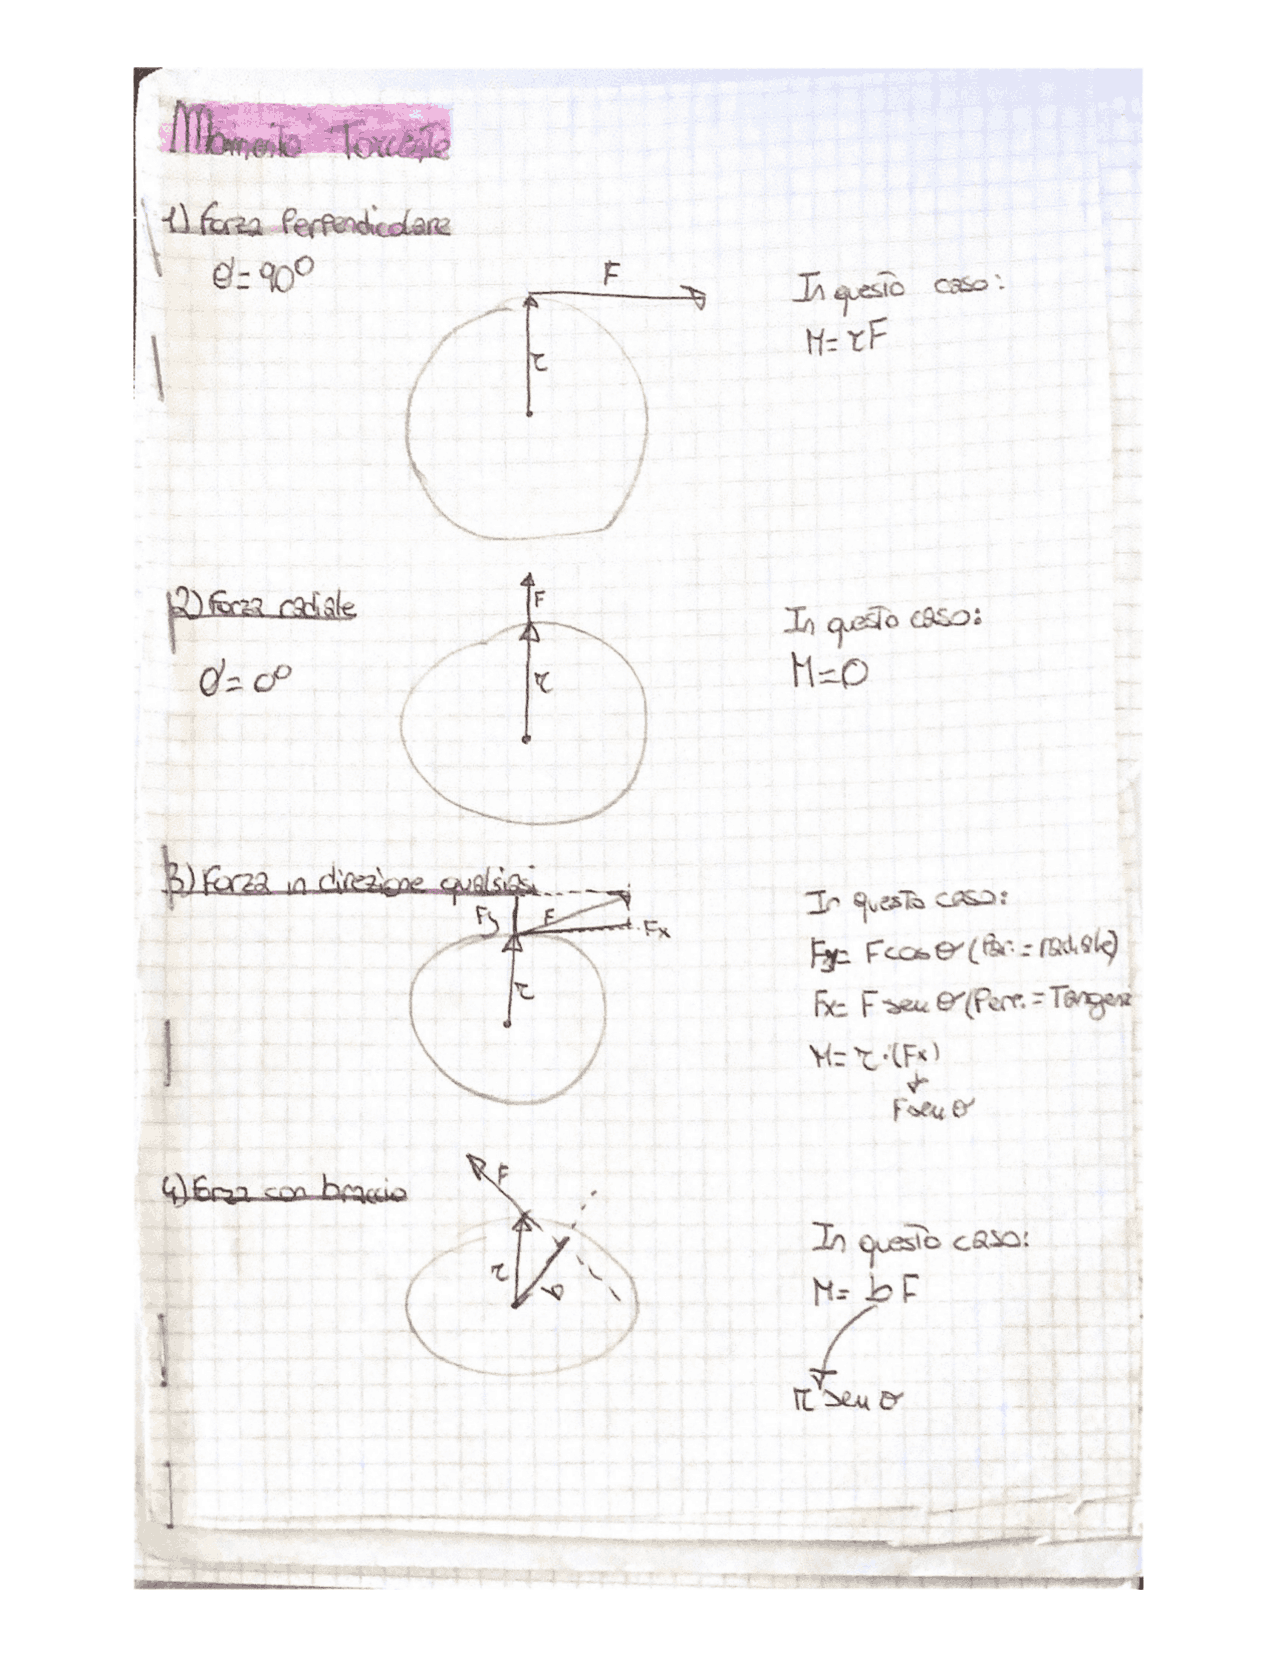 Momento Torcente
1) Forza Perpendicolare
θ = 90°
F
r
In questo caso:
M = rF
2) Forza radiale
θ = 0°
F
r
In questo caso:
M = 0
3) Forza in direzione qualsiasi
Fy
F
Fx
r
In questo caso:
Fy = F cos θ (Par. = radiale)
Fx = F sen θ (Perp. = Tangenz
M = r · (Fx)
F sen θ
4) Forza con braccio
F
r
b
In questo caso:
M = b F
r sen θ